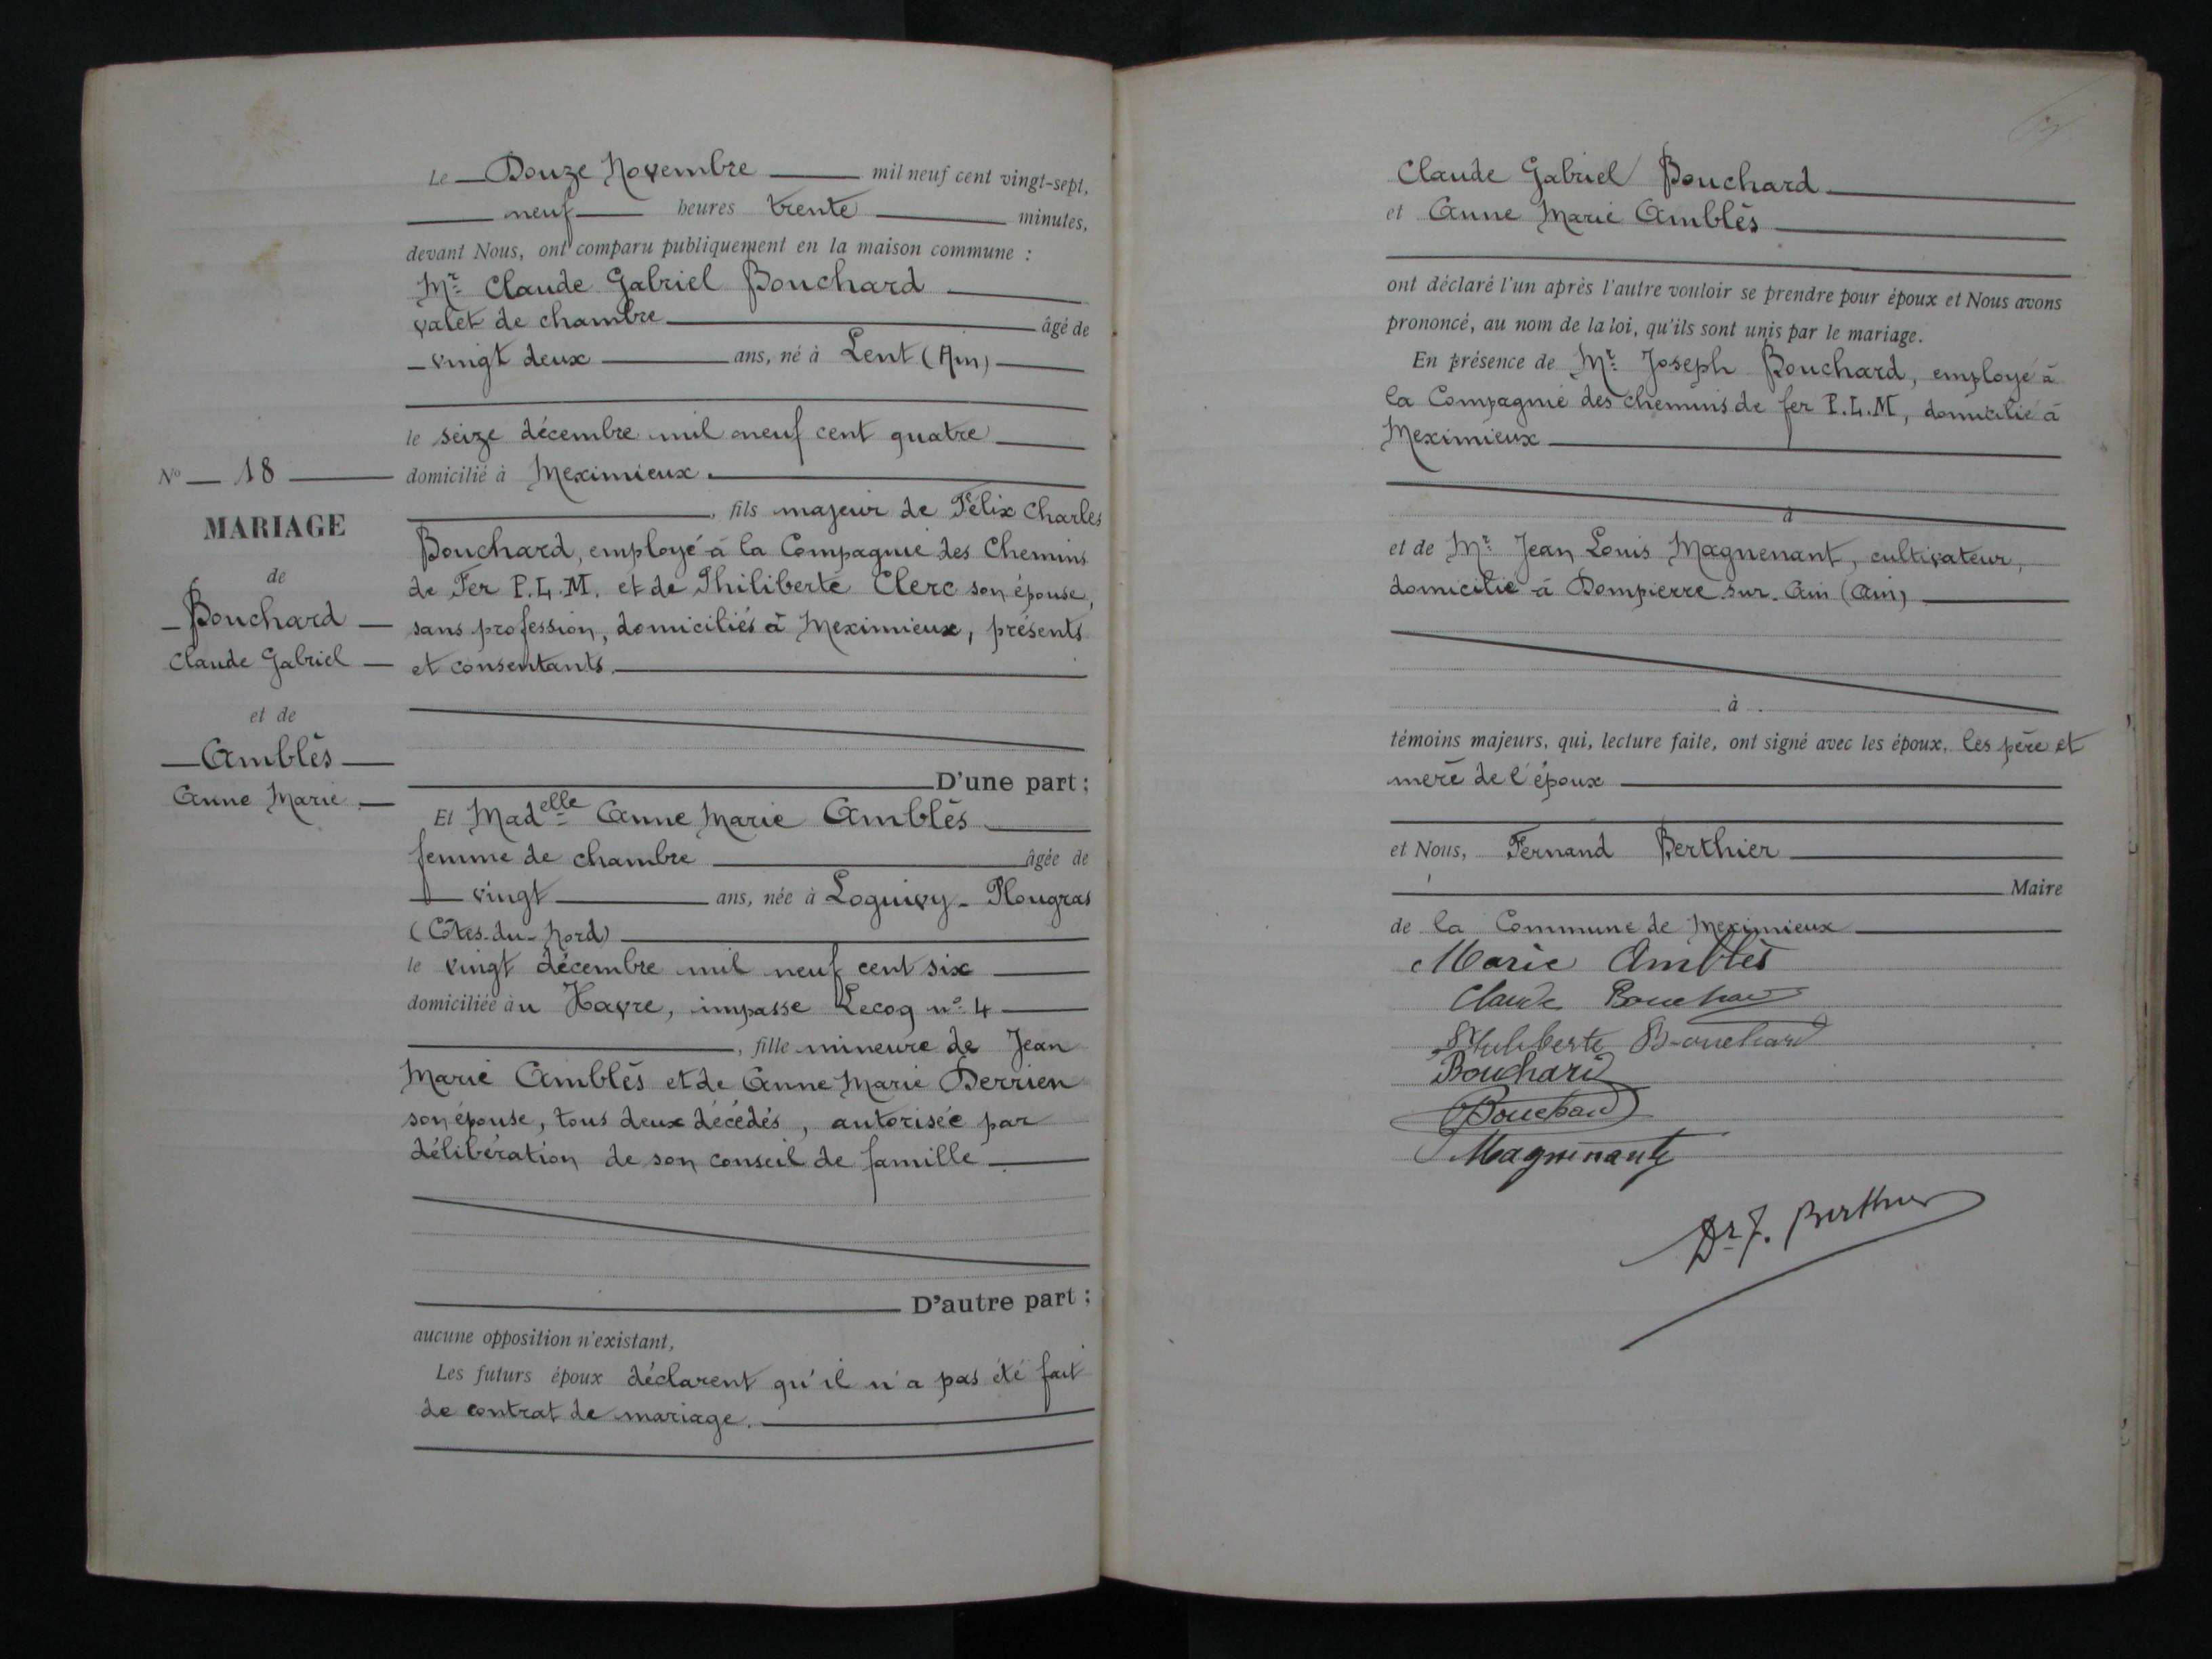 Le Douze Novembre mil neuf cent vingt-sept,
neuf heures trente minutes,
devant Nous, ont comparu publiquement en la maison commune :
Mr Claude Gabriel Bouchard
valet de chambre âgé de
vingt deux ans, né à Lent (Ain)
le seize décembre mil neuf cent quatre
domicilié à Meximieux
, fils majeur de Félix Charles
Bouchard, employé à la Compagnie des Chemins
de Fer P.L.M. et de Philiberte Clerc son épouse,
sans profession, domiciliés à Meximieux, présents
et consentants.
D'une part ;
No 18
MARIAGE
de
Bouchard
Claude Gabriel
et de
Amblès
Anne Marie
Et Madelle Anne Marie Amblès
femme de chambre âgée de
vingt ans, née à Loguivy-Plougras
(Côtes-du-Nord)
le vingt décembre mil neuf cent six
domiciliée au Havre, impasse Lecoq no 4
, fille mineure de Jean
Marie Amblès et de Anne Marie Derrien
son épouse, tous deux décédés, autorisée par
délibération de son conseil de famille
D'autre part ;
aucune opposition n'existant,
Les futurs époux déclarent qu'il n'a pas été fait
de contrat de mariage.
Claude Gabriel Bouchard
et Anne Marie Amblès
ont déclaré l'un après l'autre vouloir se prendre pour époux et Nous avons
prononcé, au nom de la loi, qu'ils sont unis par le mariage.
En présence de Mr Joseph Bouchard, employé à
la Compagnie des chemins de fer P.L.M, domicilié à
Meximieux
à
et de Mr Jean Louis Magnenant, cultivateur,
domicilié à Dompierre sur Ain (Ain)
à
témoins majeurs, qui, lecture faite, ont signé avec les époux, les père et
mère de l'époux
et Nous, Fernand Berthier
Maire
de la Commune de Meximieux
Marie Amblès
Claude Bouchard
Philiberte Bouchard
Bouchard
Bouchard
Magnenant
Dr F. Berthier